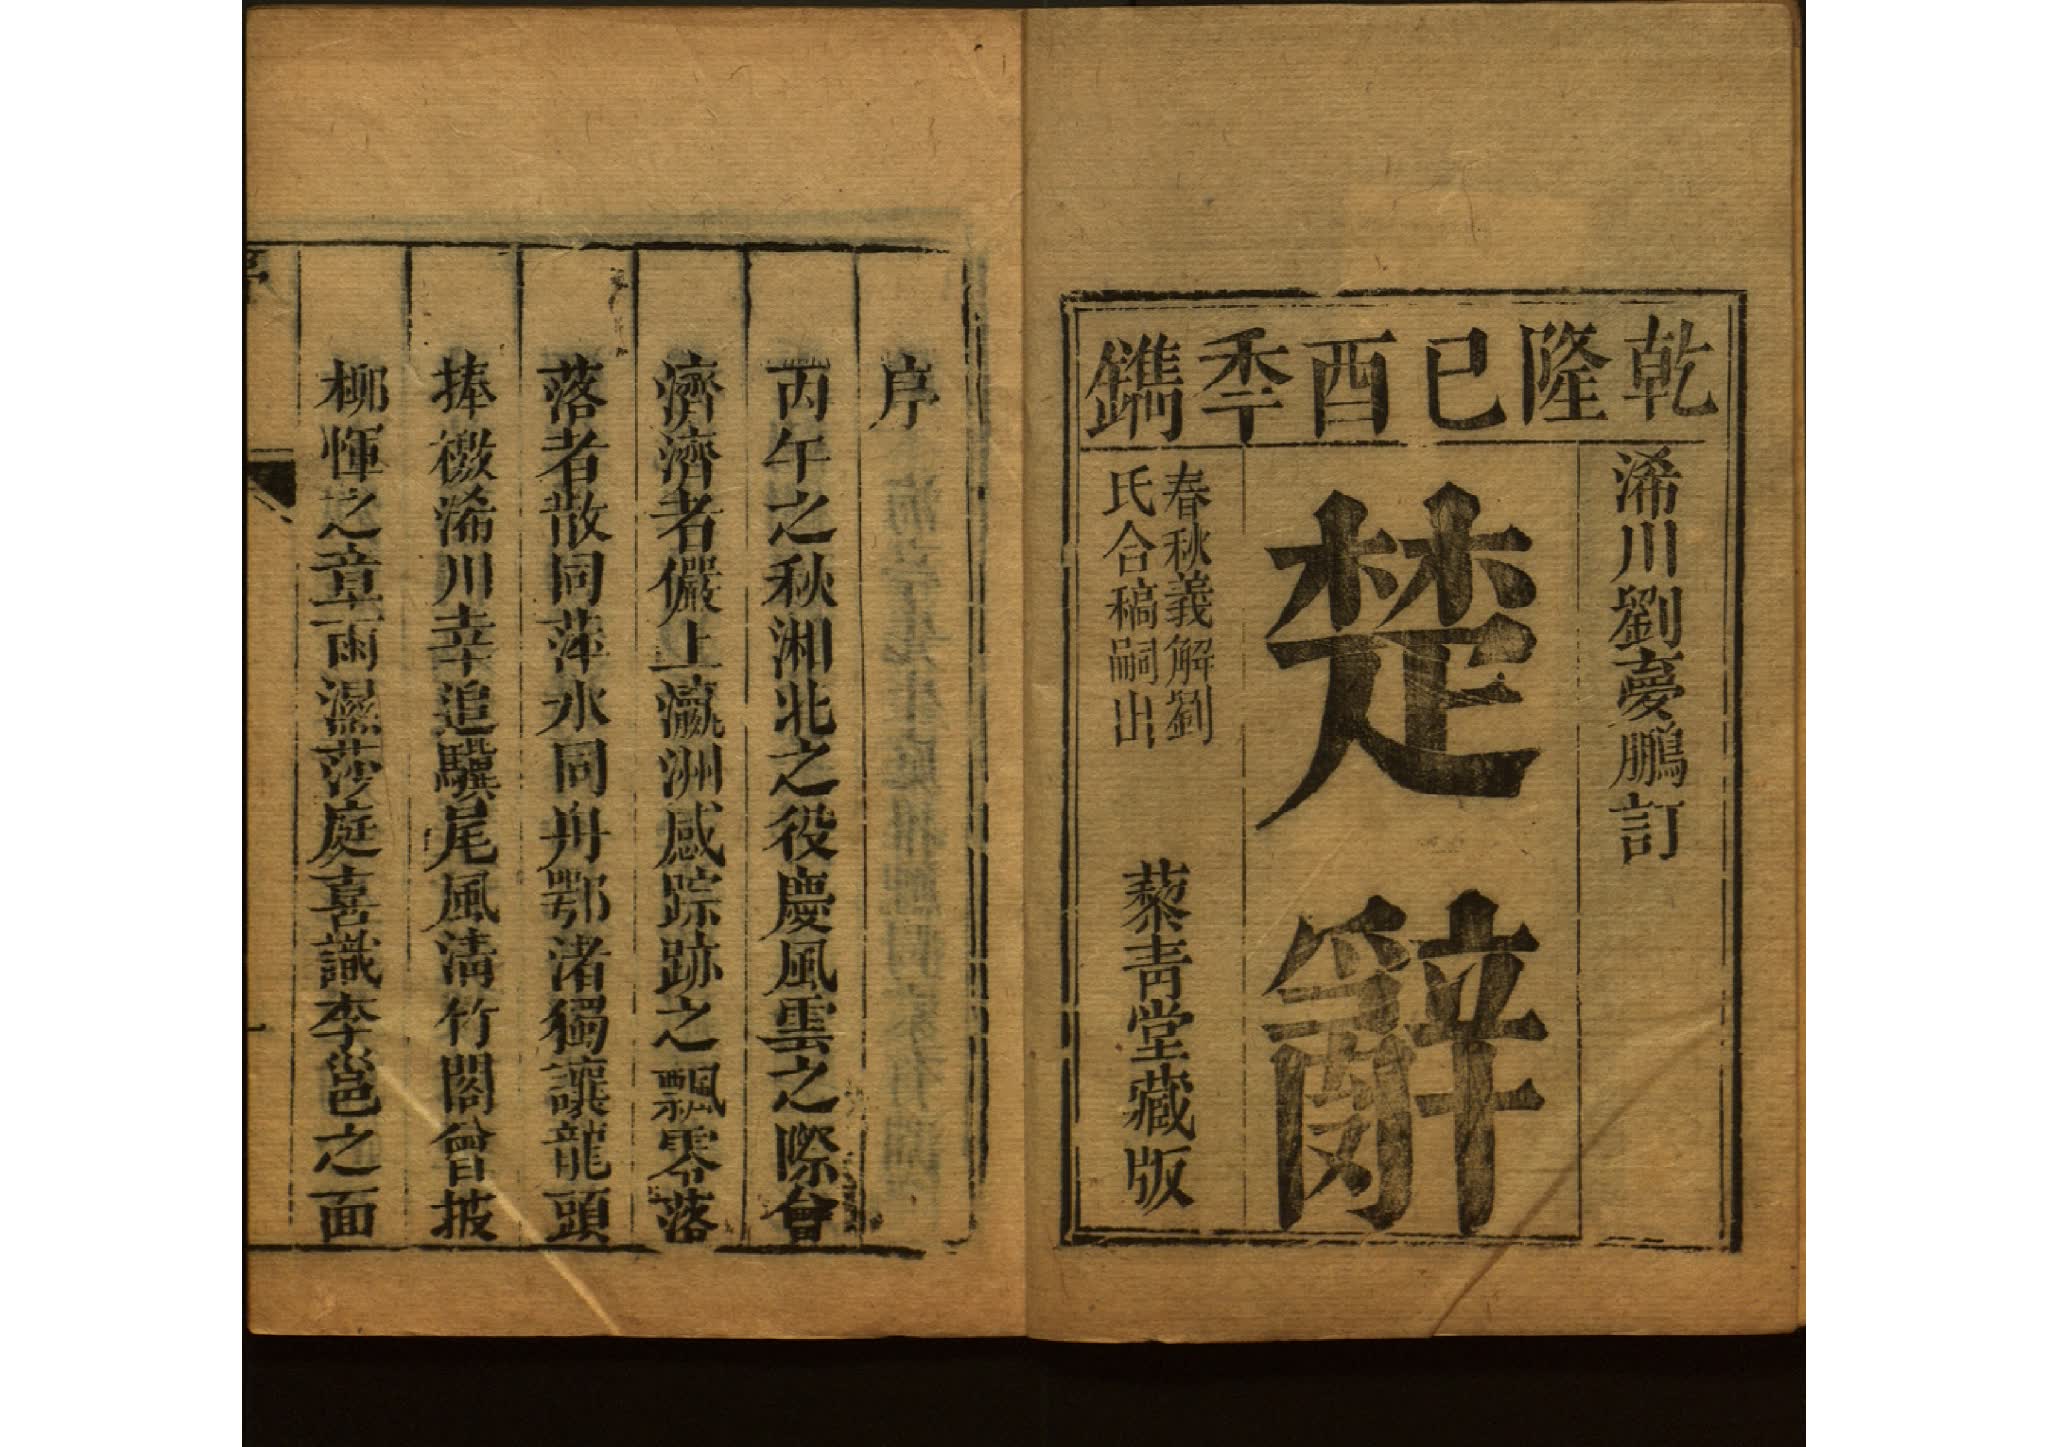 乾隆己酉秊鐫
浠川劉夢鵬訂
楚辭
春秋義解劉
氏合稿嗣出
藜青堂藏版
序
丙午之秋湘北之役慶風雲之際會
濟濟者儼上瀛洲感踪跡之飄零落
落者散同萍水同舟鄂渚獨讓龍頭
捧檄浠川幸追驥尾風清竹閣曾披
柳惲之章雨濕莎庭喜識李邕之面